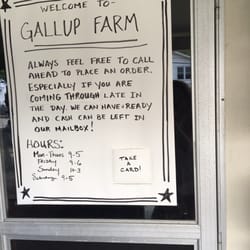 WELCOME TO-
GALLUP FARM
ALWAYS FEEL FREE TO CALL
AHEAD TO PLACE AN ORDER.
ESPECIALLY IF YOU ARE
COMING THROUGH LATE IN
THE DAY. WE CAN HAVE READY
AND CASH CAN BE LEFT IN
OUR MAILBOX!
HOURS:
Mon-Thurs 9-5
Friday 9-6
Sunday 10-3
Saturday 9-5
TAKE
A
CARD!